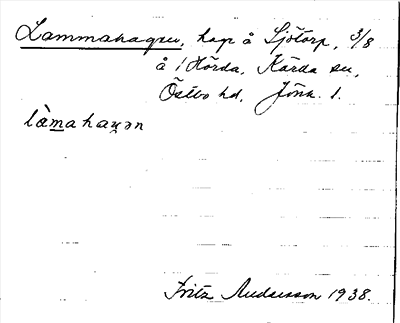 Lammahagen, hag å Sjötorp, 3/8
å 1 Hörda, Kärda sn,
Östbo hd, Jönk. l.
làmahaɣən
Fritz Andersson 1938.